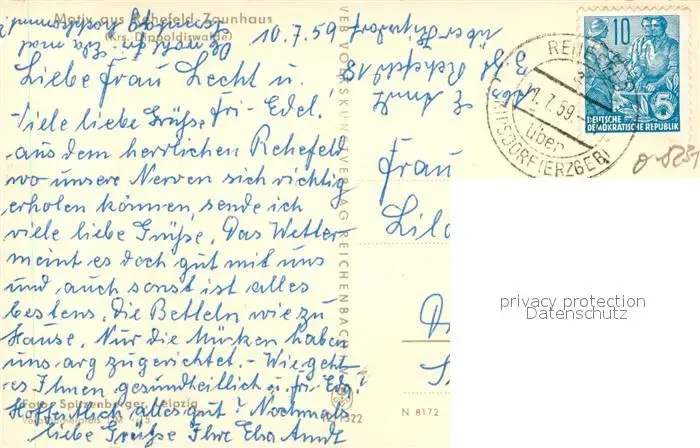 Motiv aus Rehefeld-Zaunhaus
(Krs. Dippoldiswalde)
10.7.59
Liebe Frau Lecht u.
Frl. Edel!
Viele liebe Grüße
aus dem herrlichen Rehefeld
wo unsere Nerven sich richtig
erholen können, sende ich
viele liebe Grüße. Das Wetter
meint es doch gut mit uns
und auch sonst ist alles
bestens. Die Betteln wie zu
Hause. Nur die Mücken haben
uns arg zugerichtet. - Wie geht
es Ihnen gesundheitlich u. Frl. Edel?
Hoffentlich alles gut? Nochmals
liebe Grüße Ihre Elsa Arndt
Foto: Spitzenberger, Leipzig
VEB VOLKSKUNSTVERLAG REICHENBACH
1322
N 8172
Abs. E. Arndt
z. Zt. Rehefeld 13
über
Frau
10
5
DEUTSCHE
DEMOKRATISCHE REPUBLIK
REHEFELD
1.7.59
über
ERZGEB
privacy protection
Datenschutz